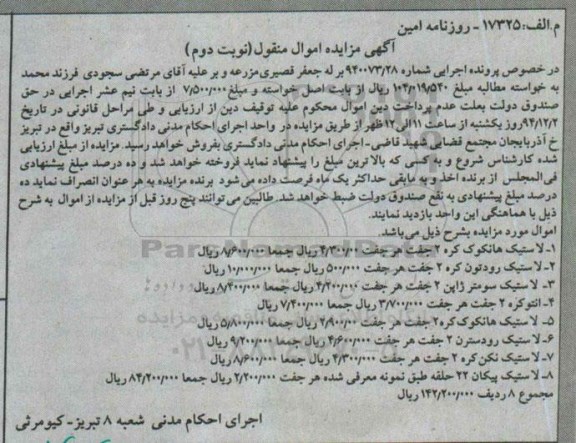 م.الف: ۱۷۳۲۵- روزنامه امین
آگهی مزایده اموال منقول(نوبت دوم)
در خصوص پرونده اجرایی شماره ۹۴۰۰۷۳/۲۸ بر له جعفر قصیری مزرعه و بر علیه آقای مرتضی سجودی فرزند محمد
به خواسته مطالبه مبلغ ۱۰۴/۰۱۹/۵۴۰ ریال از بابت اصل خواسته و مبلغ ۷/۵۰۰/۰۰۰ از بابت نیم عشر اجرایی در حق
صندوق دولت بعلت عدم پرداخت دین اموال محکوم علیه توقیف دین از ارزیابی و طی مراحل قانونی در تاریخ
۹۴/۱۲/۲روز یکشنبه از ساعت ۱۱الی۱۲ ظهر از طریق مزایده در واحد اجرای احکام مدنی دادگستری تبریز واقع در تبریز
خ آذربایجان مجتمع قضایی شهید قاضی-اجرای احکام مدنی دادگستری بفروش خواهد رسید. مزایده از مبلغ ارزیابی
شده کارشناس شروع و به کسی که بالا ترین مبلغ را پیشنهاد نماید فروخته خواهد شد و ده درصد مبلغ پیشنهادی
فی المجلس از برنده اخذ و به مابقی حداکثر یک ماه فرصت داده می شود برنده مزایده به هر عنوان انصراف نماید ده
درصد مبلغ پیشنهادی به نفع صندوق دولت ضبط خواهد شد. طالبین می توانند پنج روز قبل از مزایده از اموال به شرح
ذیل با هماهنگی این واحد بازدید نمایند.
اموال مورد مزایده بشرح ذیل می باشد.
۱- لاستیک هانکوک کره ۲ جفت هر جفت ۴/۳۰۰/۰۰۰ ریال جمعا ۸/۶۰۰/۰۰۰ ریال
۲- لاستیک رودتون کره ۲ جفت هر جفت ۵۰۰/۰۰۰ ریال جمعا ۱۰/۰۰۰/۰۰۰ ریال
۳- لاستیک سومتر ژاپن ۲ جفت هر جفت ۴/۲۰۰/۰۰۰ ریال جمعا ۸/۴۰۰/۰۰۰ ریال
۴- انتوکره ۲ جفت هر جفت ۳/۷۰۰/۰۰۰ ریال جمعا ۷/۴۰۰/۰۰۰ ریال
۵- لاستیک هانکوک کره ۲ جفت هر جفت ۲/۹۰۰/۰۰۰ ریال جمعا ۵/۸۰۰/۰۰۰ ریال
۶- لاستیک رودسترن ۲ جفت هر جفت ۴/۶۰۰/۰۰۰ ریال جمعا ۹/۲۰۰/۰۰۰ ریال
۷- لاستیک نکن کره ۲ جفت هر جفت ۴/۳۰۰/۰۰۰ ریال جمعا ۸/۶۰۰/۰۰۰ ریال
۸- لاستیک پیکان ۲۲ حلقه طبق نمونه معرفی شده هر جفت ۲/۲۰۰/۰۰۰ ریال جمعا ۸۴/۲۰۰/۰۰۰ ریال
مجموع ۸ ردیف ۱۴۲/۲۰۰/۰۰۰ ریال
اجرای احکام مدنی شعبه ۸ تبریز- کیومرثی
ParsNamadData